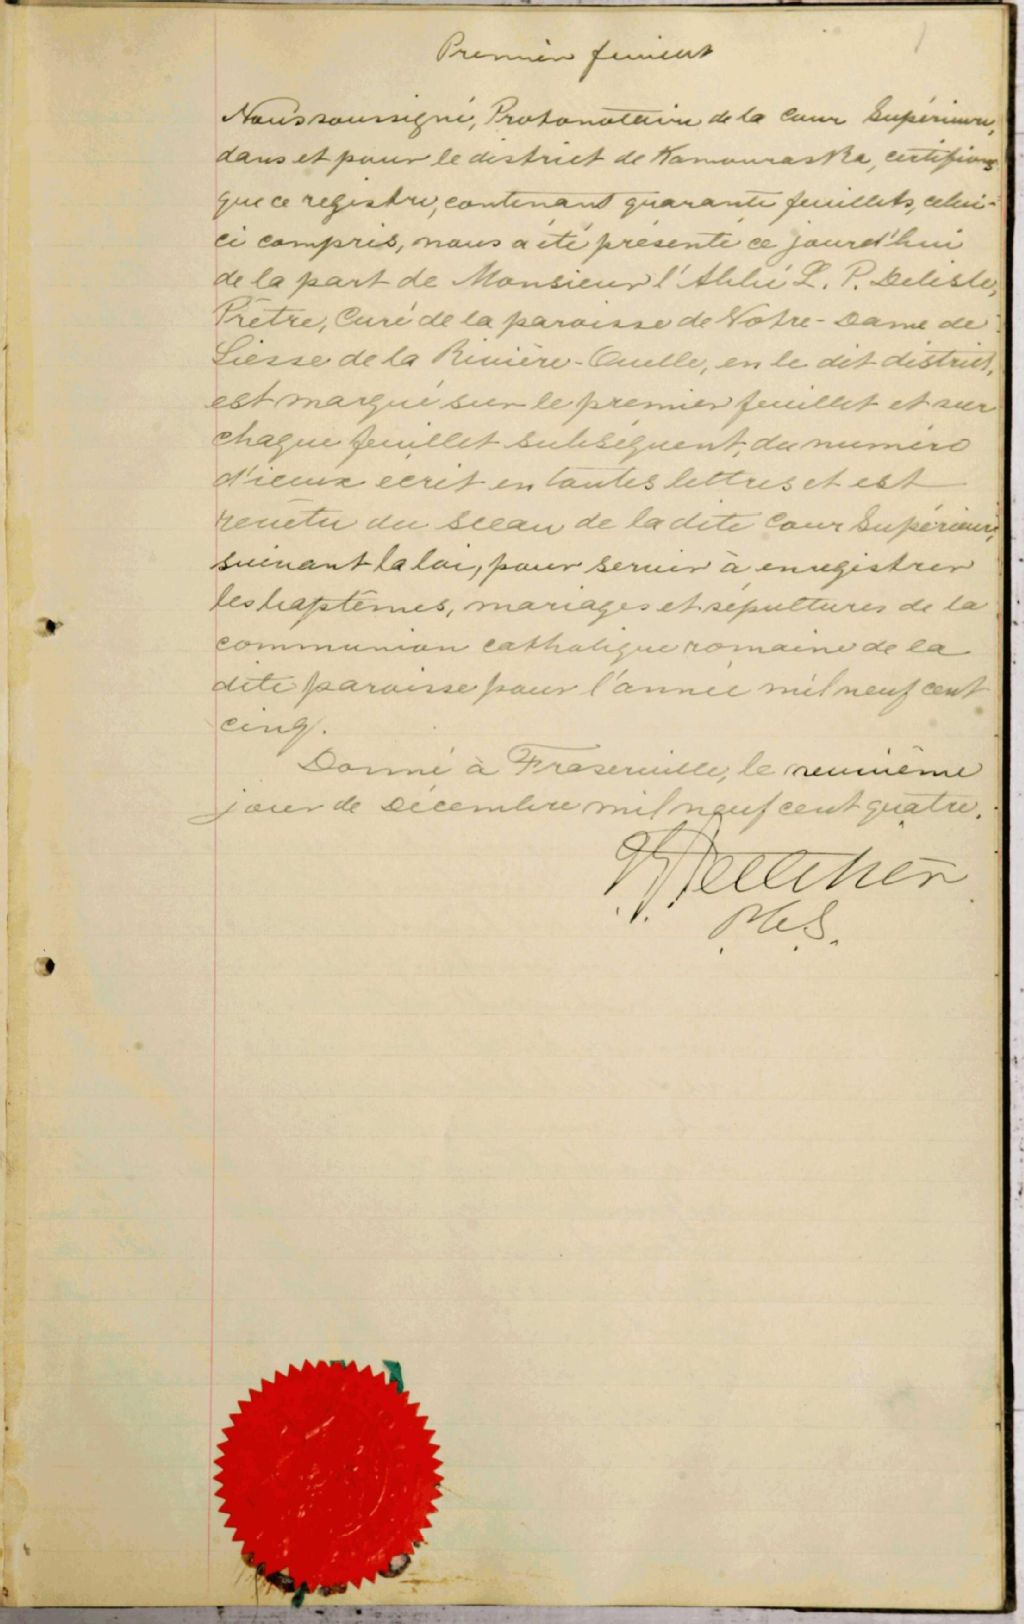 Premier feuillet
1
Nous soussigné, Protonotaire de la Cour Supérieure,
dans et pour le district de Kamouraska, certifions
que ce registre, contenant quarante feuillets, celui-
ci compris, nous a été présenté ce jourd'hui
de la part de Monsieur l'Abbé L. P. Delisle,
Prêtre, Curé de la paroisse de Notre-Dame de
Liesse de la Rivière-Ouelle, en le dit district,
est marqué sur le premier feuillet et sur
chaque feuillet subséquent, du numéro
d'iceux écrit en toutes lettres et est
revêtu du sceau de la dite Cour Supérieure,
suivant la loi, pour servir à enregistrer
les baptêmes, mariages et sépultures de la
communion catholique romaine de la
dite paroisse pour l'année mil neuf cent
cinq.
Donné à Fraserville, le neuvième
jour de Décembre mil neuf cent quatre.
Pelletier
P.C.S.